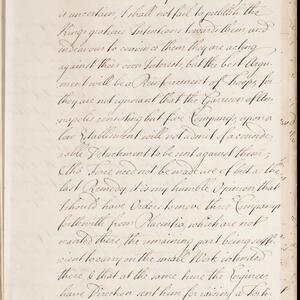 is uncertain, I shall not fail to publish the
Kings gratious Intentions towards them, and
endeavour to convince them they are acting
against their own Interest, but the best Argu-
ment will be a Reinforcement of Troops, for
they are not ignorant that the Garrison of An-
napolis consisting but five Companys, upon a
low Establishment will not admit of a conside-
rable Detachment to be sent against them;
Altho' Force need not be made use of but as the
last Remedy it is my humble Opinion that
I should have Orders to move three Companys
forthwith from Placentia, which are not
wanted there, the remaining part being suffi-
cient to carry on the small Work intended
there & that at the same time the Engineer
have Direction sent him for raising a Forti-